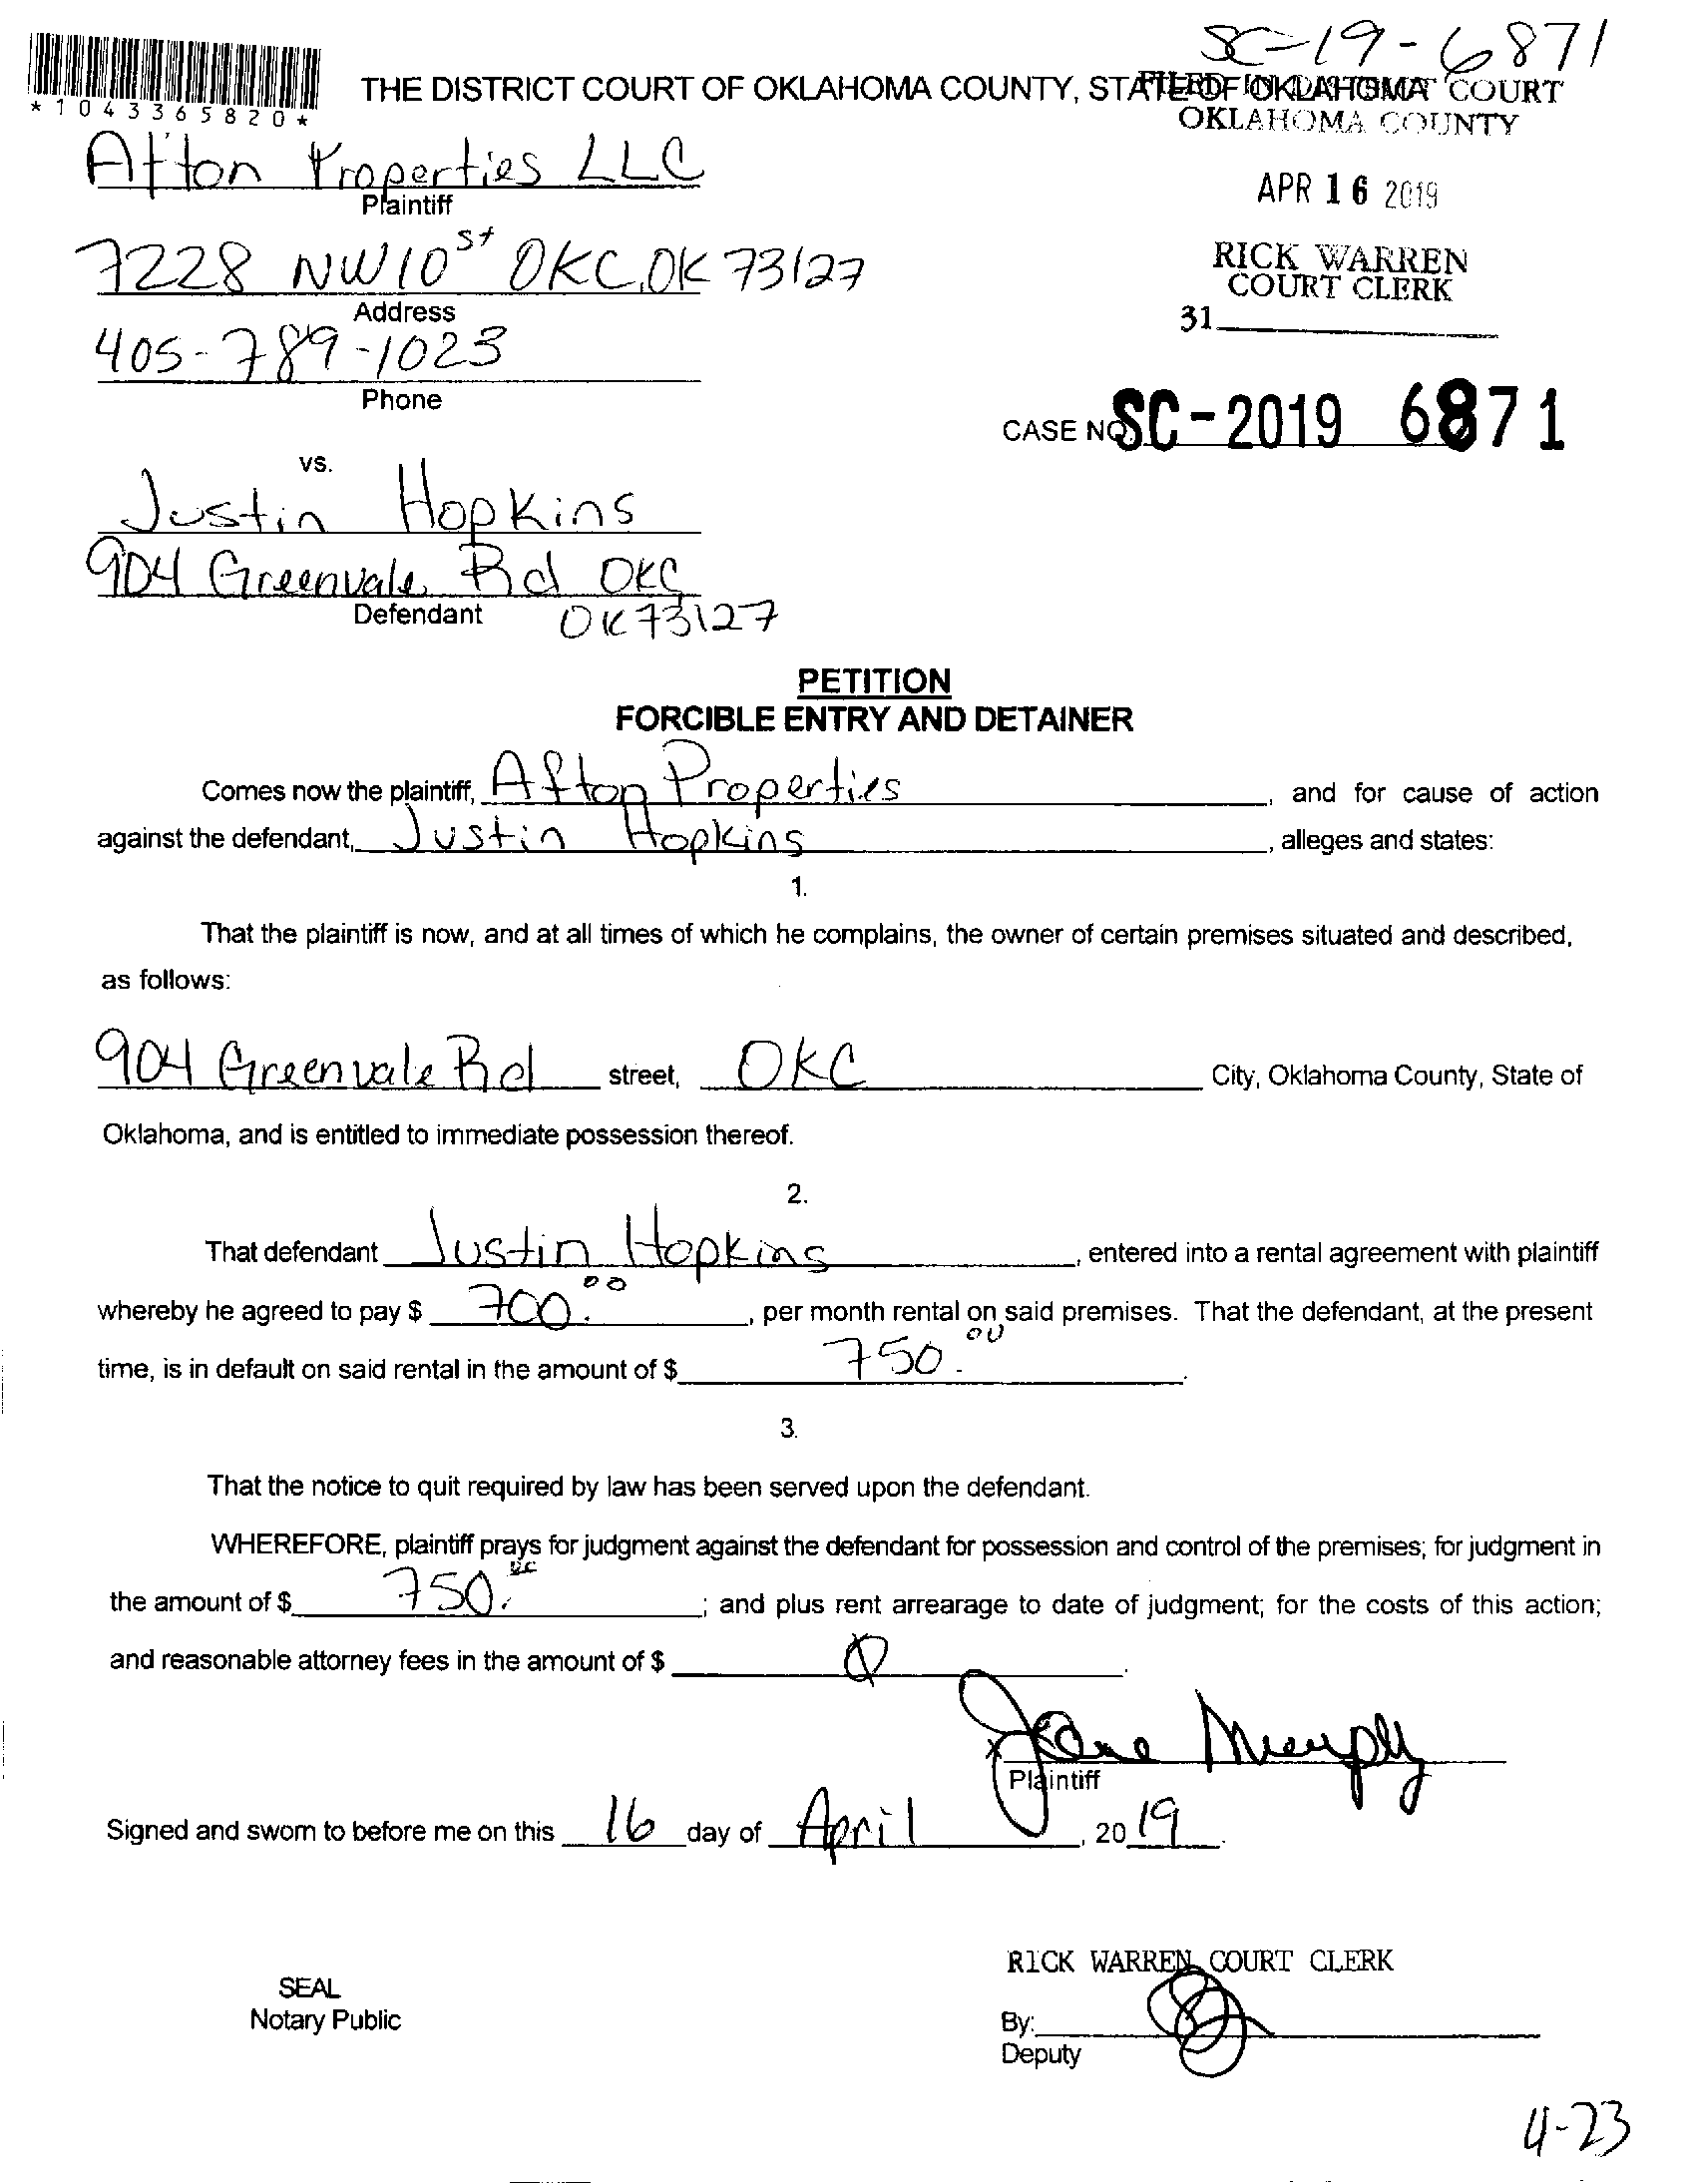 SC-19-6871
THE DISTRICT COURT OF OKLAHOMA COUNTY, STATE OF OKLAHOMA
FILED IN DISTRICT COURT
OKLAHOMA COUNTY
*1043365820*
Afton Properties LLC
Plaintiff
APR 16 2019
7228 NW 10st OKC, OK 73127
Address
RICK WARREN
COURT CLERK
31
405-789-1023
Phone
CASE NO. SC-2019 6871
vs.
Justin Hopkins
904 Greenvale Rd OKC
Defendant OK 73127
PETITION
FORCIBLE ENTRY AND DETAINER
Comes now the plaintiff, Afton Properties, and for cause of action
against the defendant, Justin Hopkins, alleges and states:
1.
That the plaintiff is now, and at all times of which he complains, the owner of certain premises situated and described,
as follows:
904 Greenvale Rd street, OKC City, Oklahoma County, State of
Oklahoma, and is entitled to immediate possession thereof.
2.
That defendant Justin Hopkins, entered into a rental agreement with plaintiff
whereby he agreed to pay $ 700.00, per month rental on said premises. That the defendant, at the present
time, is in default on said rental in the amount of $ 750.00.
3.
That the notice to quit required by law has been served upon the defendant.
WHEREFORE, plaintiff prays for judgment against the defendant for possession and control of the premises; for judgment in
the amount of $ 750.00; and plus rent arrearage to date of judgment; for the costs of this action;
and reasonable attorney fees in the amount of $ 0.
x Jane Murphy
Plaintiff
Signed and sworn to before me on this 16 day of April, 2019.
RICK WARREN, COURT CLERK
SEAL
Notary Public
By:
Deputy
4-23